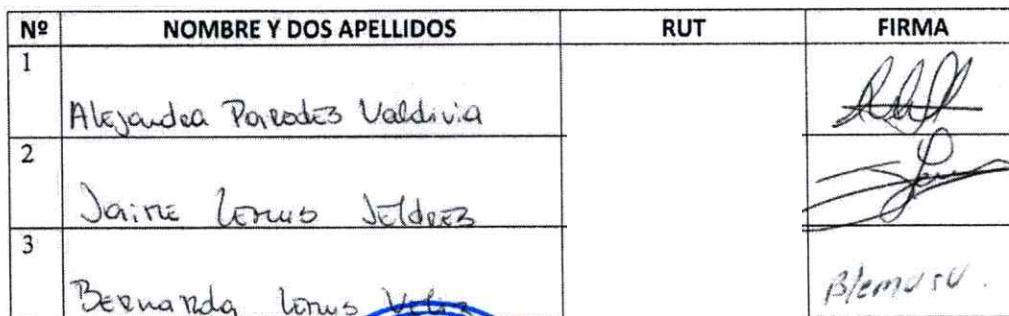 Nº NOMBRE Y DOS APELLIDOS RUT FIRMA
1
Alejandra Paredes Valdivia
2
Jaime Lemus Jeldrez
3
Bernarda Lemus Veliz BlemusV.